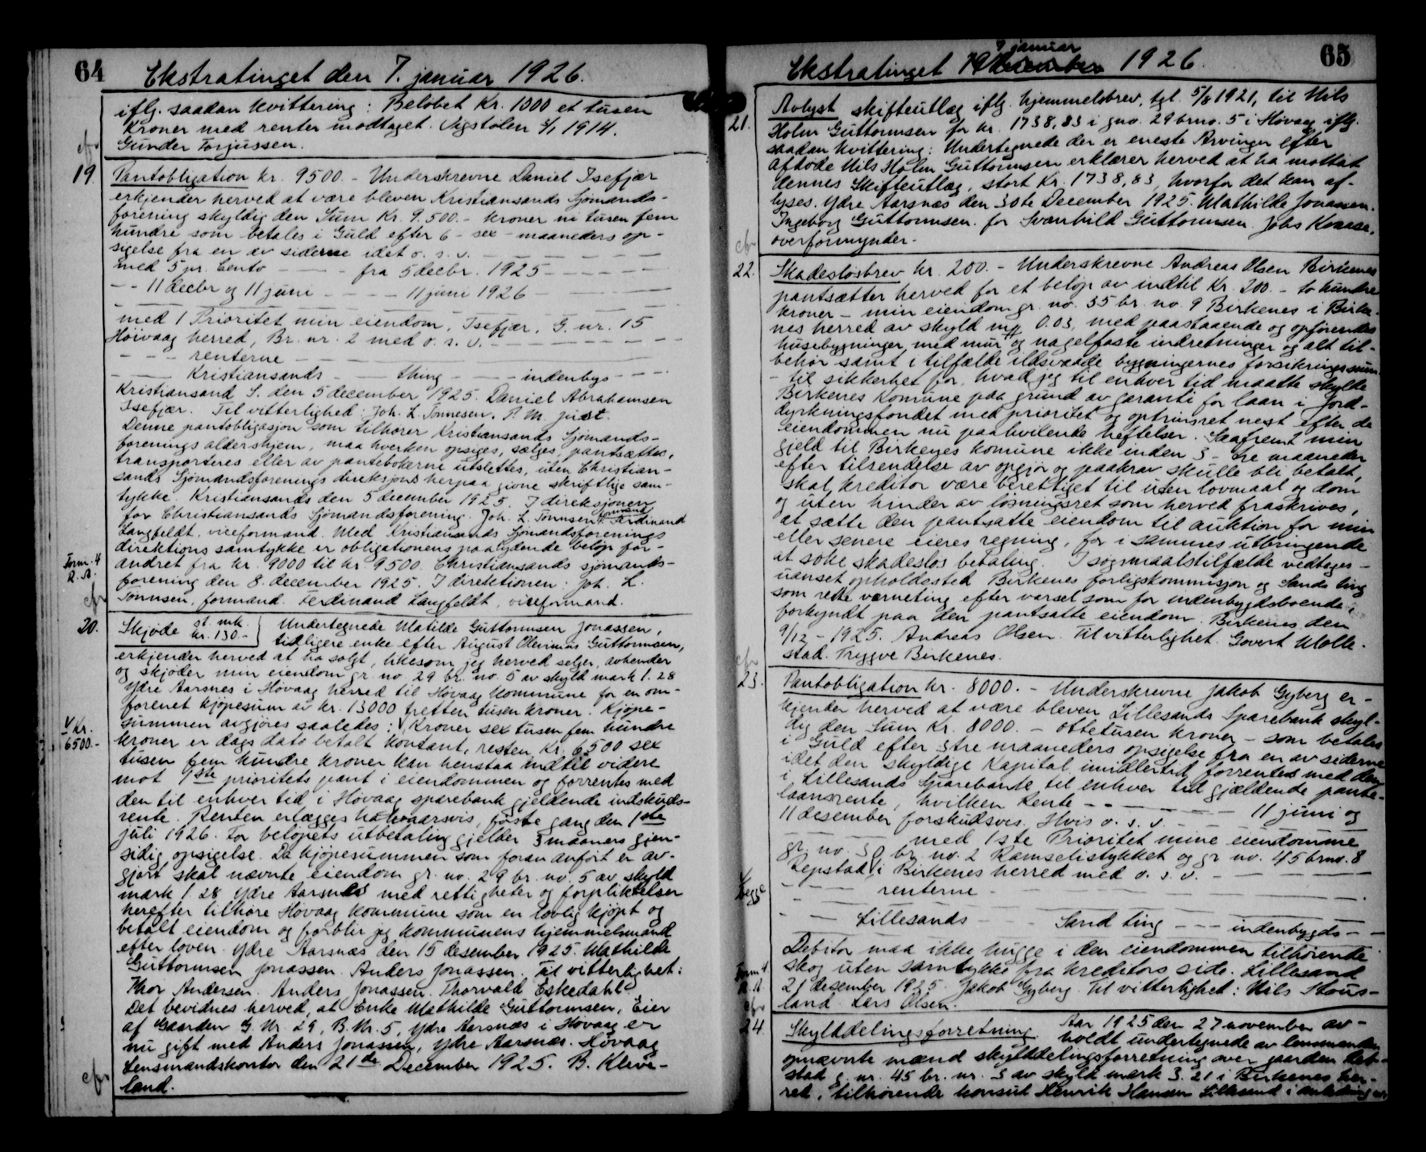 64
Ekstratinget den 7. januar 1926.
iflg. saadan kvittering: Beløbet Kr. 1000 et tusen
Kroner med renter modtaget. Vigstølen 3/1 1914.
Gunder Torjussen.
cfr
19
Pantobligation kr. 9500 - Underskrevne Daniel Isefjær
erkjender herved at være bleven Kristiansands Sjømands-
forening skyldig den Sum Kr. 9.500.- kroner ni tusen fem
hundre som betales i Guld efter 6 - sex - maaneders op-
sigelse fra en av siderne idet o. s. v.
med 5 pr. cento - - - fra 5 decbr. 1925
- - 11 decbr og 11 juni - - - 11 juni 1926
med 1 Prioritet min eiendom, Isefjær, G. nr. 15
Høivaag herred, Br. nr. 2 med o. s. v.
- - - renterne
- - Kristiansands - thing - - indenbys - -
Kristiansand S. den 5 december 1925. Daniel Abrahamsen
Isefjær. Til vitterlighed: Joh. L. Tønnesen.
Denne pantobligasjon som tilhører Kristiansands Sjømands-
forenings aldershjem, maa hverken opsiges, sælges, pantsættes,
transporteres eller av pantebøkerne utslettes, uten Christian-
sands Sjømandsforenings direksjons herpaa givne skriftlige sam-
tykke. Kristiansands den 5 december 1925. I direksjonen
for Christiansands Sjømandsforening. Joh. L. Tønnsen formand. Ferdinand
Langfeldt, viceformand. Med Kristiansands Sjømandsforenings
direktions samtykke er obligationens paalydende beløp for-
andret fra kr. 9000 til kr 9500. Christiansands sjømands-
forening den 8. december 1925. I direktionen: Joh. L.
Tønnsen, formand. Ferdinand Langfeldt, viceformand.
Form. 4
cfr
20.
Skjøde st. mk. kr. 130.- Undertegnede Matilde Guttormsen Jonassen,
tidligere enke efter August Olenius Guttormsen,
erkjender herved at ha solgt, likesom jeg herved selger, avhender
og skjøder min eiendom gr no 29 br. no. 5 av skyld mark 1. 28
Ydre Aarsnes i Høvaag herred til Høvaag kommune for en om-
forenet kjøpesum av kr. 13000 tretten tusen kroner. Kjøpe-
summen avgjøres saaledes: V Kroner sex tusen fem hundre
V Kr.
6500.-
kroner er dags dato betalt kontant, resten Kr. 6500 sex
tusen fem hundre kroner kan henstaa indtil videre
mot 1ste prioritets pant i eiendommen og forrentes med
den til enhver tid i Høvaag sparebank gjeldende indskuds-
rente. Renten erlægges halvaarsvis, første gang den 1ste
juli 1926. For beløpets utbetaling gjelder 3 maaners gjen-
sidig opsigelse. Da kjøpesummen som foran anført er av-
gjort skal nævnte eiendom gr. no. 29 br. no. 5 av skyld
mark 1. 28 Ydre Aarsnes med rettigheter og forpliktelser
herefter tilhøre Høvaag kommune som en lovlig kjøpt og
betalt eiendom og forblir jeg kommunens hjemmelsmand
efter loven. Ydre Aarsnæs den 15 desember 1925. Mathilde
Guttormsen Jonassen. Anders Jonassen. Til vitterlighet:
Thor Andersen. Anders Jonassen. Thorvald Eskedahl.
Det bevidnes herved, at Enke Mathilde Guttormsen, Eier
af Gaarden G. Nr. 29, B. Nr. 5, Ydre Aarsnæs i Høvaag er
nu gift med Anders Jonassen, Ydre Aarsnæs. Høvaag
Lensmandskontor den 21de December 1925. B. Kleve-
land.
cfr
65
Ekstratinget 7 januar 1926.
21.
Avlyst skifteutlæg iflg. hjemmelsbrev, tgl. 5/8 1921, til Nils
Holm Guttormsen for kr. 1738,83 i gno. 29 brno. 5 i Høvaag iflg.
saadan kvittering: Undertegnede der er eneste Arvinger efter
afdøde Nils Holm Guttormsen erklærer herved at ha mottat
dennes Skifteutlæg, stort Kr. 1738,83, hvorfor det kan af-
lyses. Ydre Aarsnes den 30te December 1925. Mathilde Jonassen.
Ingeborg Guttormsen. for Svanhild Guttormsen. Jobs Kaasa,
overformynder.
cfr
22.
Skadesløsbrev kr. 200. - Underskrevne Andreas Olsen Birkenes
pantsætter herved for et beløp av indtil Kr. 200. - to hundre
kroner - min eiendom gr. no. 55 br. no 9 Birkenes i Birke-
nes herred av skyld mk 0.03, med paastaaende og opførendes
husebygninger, med mur og nagelfaste indretninger og alt til-
behør samt i tilfælde ildsvaade bygningernes forsikringssum
- til sikkerhet for, hvad jeg til enhver tid maatte skylde
Birkenes Komune paa grund av garanti for laan i Jord-
dyrkningsfondet med prioritet og optrinsret nest efter de
eiendommen nu paahvilende heftelser. Saafremt min
gjeld til Birkenes komune ikke inden 3 - tre maaneder
efter tilsendelse av opgjør og paakrav skulle bli betalt,
skal kreditor være berettiget til uten lovmaal og dom
og uten hinder av løsningsret som herved fraskrives,
at sætte den pantsatte eiendom til auktion for min
eller senere eieres regning, for i sammes utbringende
at søke skadesløs betaling. I søgsmaalstilfælde vedtages -
uanset opholdssted Birkenes forligskommisjon og Sands ting
som rette værneting efter varsel som for indenbygdsboende
forkyndt paa den pantsatte eiendom. Birkenes den
9/12 - 1925. Andreas Olsen. Til vitterlighet: Govert Molle-
stad. Trygve Birkenes.
cfr
23.
Pantobligation kr. 8000. - Underskrevne Jakob Gyberg er-
kjender herved at være bleven Lillesands Sparebank skyl-
dig den Sum Kr. 8000. - ottetusen kroner - som betales
i Guld efter 3 tre maaneders opsigelse fra en av siderne
idet den skyldige Kapital imidlertid forrentes med den
i Lillesands Sparebank til enhver tid gjældende pante-
laansrente, hvilken Rente - - - 11 juni og
11 desember forskudsvis. Hvis o. s. v.
- - med 1ste Prioritet mine eiendomme
gr. no. 50 br. no. 2 Ramselistykket og gr no. 45 brno. 8
Repstad i Birkenes herred med o. s. v.
- - renterne
- Lillesands - Sand ting - - indenbygds - -
Debitor maa ikke hugge i den eiendommen tilhørende
skog uten samtykke fra kreditors side. Lillesand
21 desember 1925. Jakob Gyberg. Til vitterlighet: Nils Stous-
land. Lars Olsen.
Form 4
cfr
24.
Skylddelingsforretning Aar 1925 den 27 november av-
holdt undertegnede av lensmanden
opnævnte mænd skylddelingsforretning over gaarden Rep-
stad g. nr. 45 br. nr. 3 av skyld mark 3. 21 i Birkenes her-
red, tilhørende konsul Henrik Hansen Lillesand i anledning av